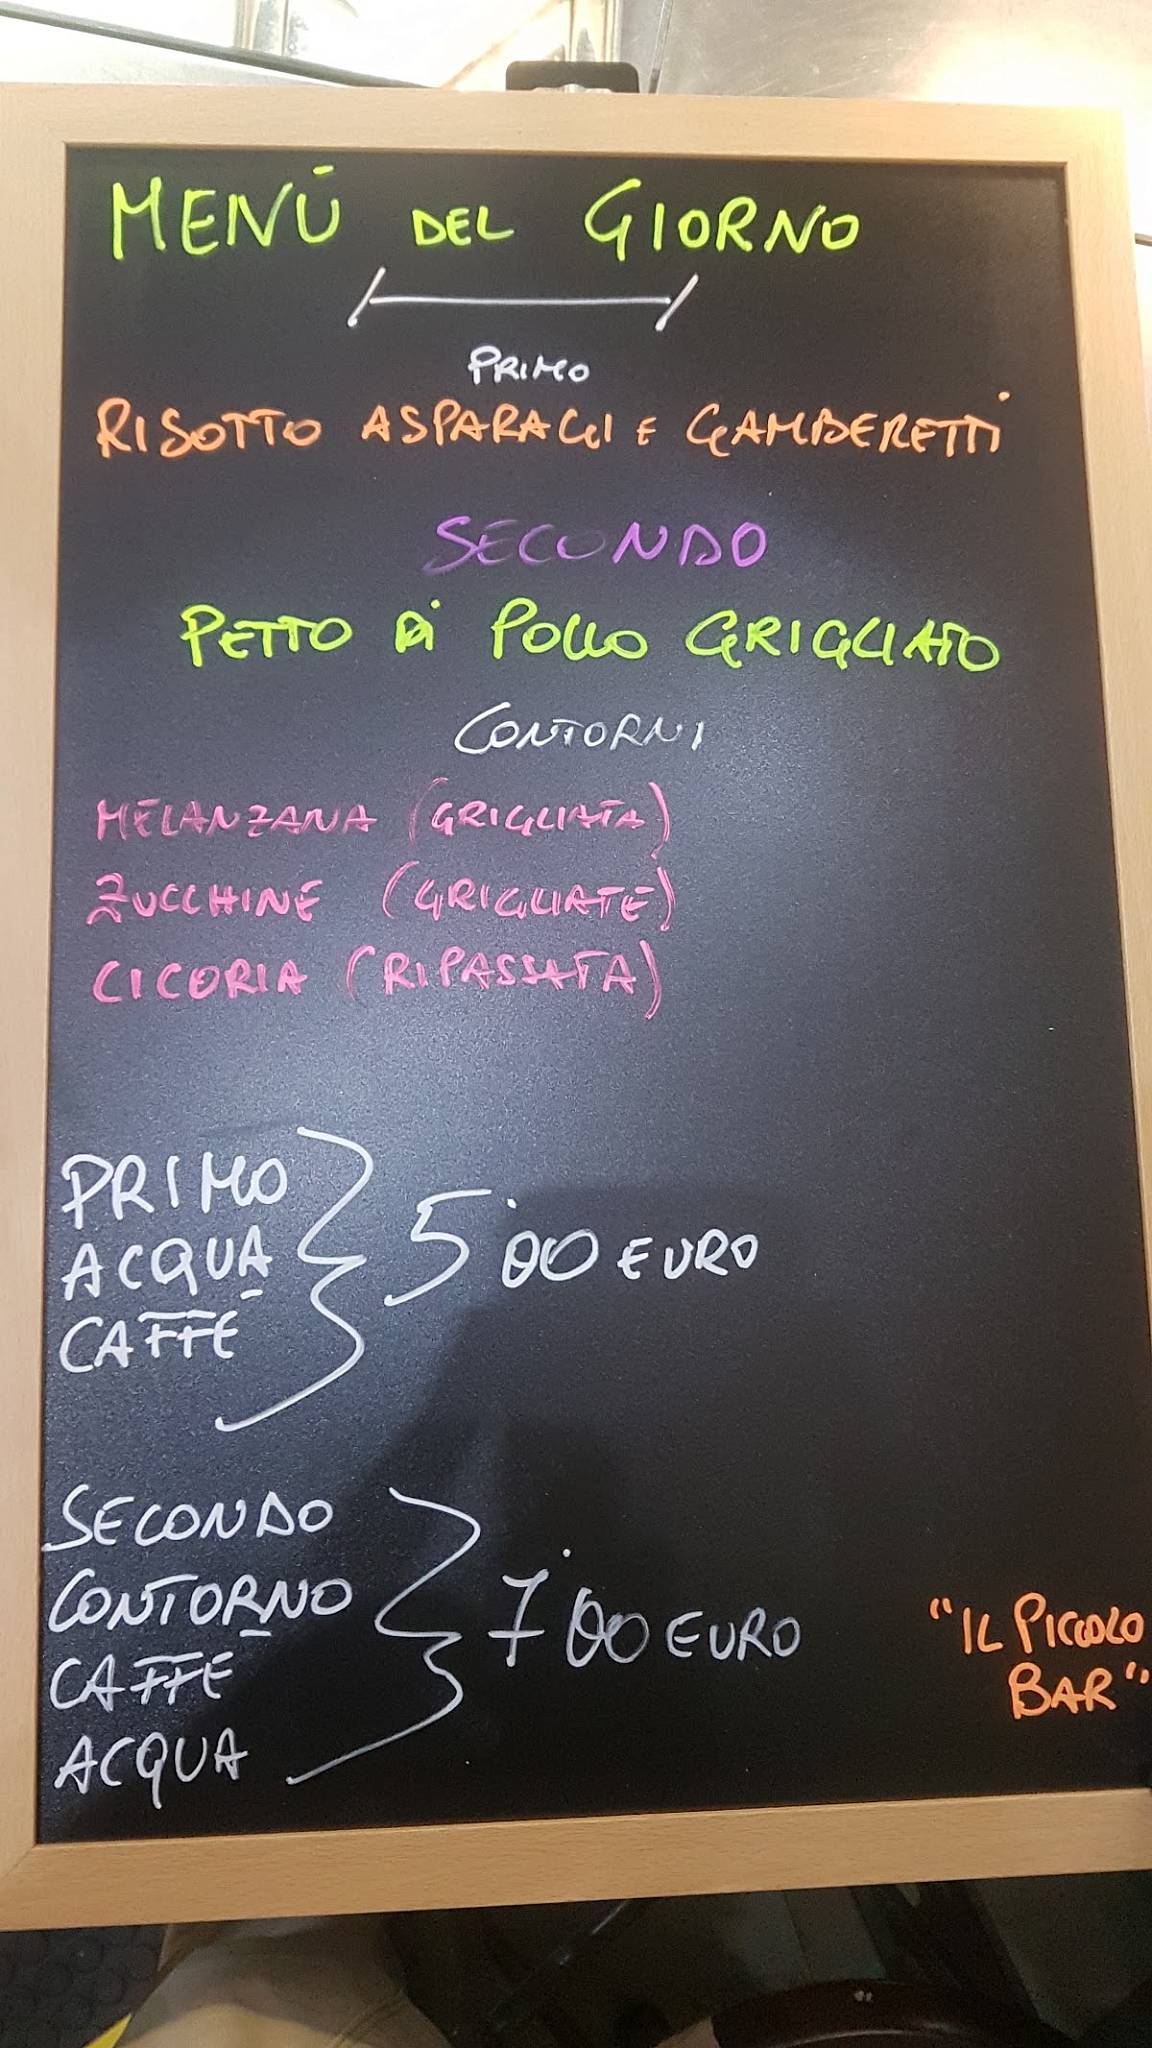 MENÙ DEL GIORNO
PRIMO
RISOTTO ASPARAGI E GAMBERETTI
SECONDO
PETTO Di POLLO GRIGLIATO
CONTORNI
MELANZANA (GRIGLIATA)
ZUCCHINE (GRIGLIATE)
CICORIA (RIPASSATA)
PRIMO
ACQUA
CAFFÈ
5'00 EURO
SECONDO
CONTORNO
CAFFE
ACQUA
7'00 EURO
"IL PICCOLO
BAR"